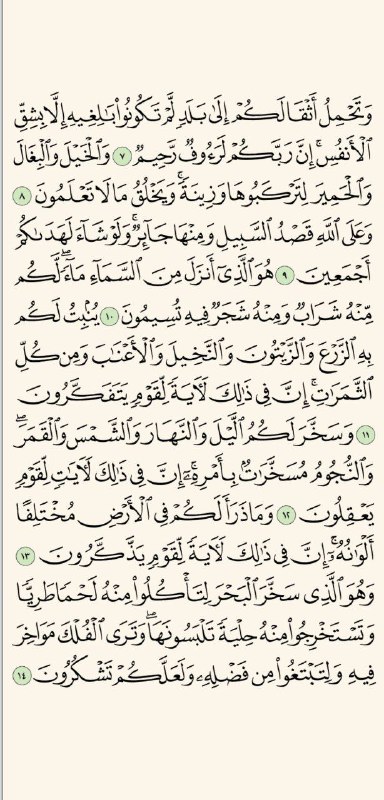 وَتَحْمِلُ أَثْقَالَكُمْ إِلَىٰ بَلَدٍ لَّمْ تَكُونُوا۟ بَـٰلِغِيهِ إِلَّا بِشِقِّ
ٱلْأَنفُسِ ۚ إِنَّ رَبَّكُمْ لَرَءُوفٌ رَّحِيمٌ ٧ وَٱلْخَيْلَ وَٱلْبِغَالَ
وَٱلْحَمِيرَ لِتَرْكَبُوهَا وَزِينَةً ۚ وَيَخْلُقُ مَا لَا تَعْلَمُونَ ٨
وَعَلَى ٱللَّهِ قَصْدُ ٱلسَّبِيلِ وَمِنْهَا جَآئِرٌ ۚ وَلَوْ شَآءَ لَهَدَىٰكُمْ
أَجْمَعِينَ ٩ هُوَ ٱلَّذِىٓ أَنزَلَ مِنَ ٱلسَّمَآءِ مَآءً ۖ لَّكُم
مِّنْهُ شَرَابٌ وَمِنْهُ شَجَرٌ فِيهِ تُسِيمُونَ ١٠ يُنۢبِتُ لَكُم
بِهِ ٱلزَّرْعَ وَٱلزَّيْتُونَ وَٱلنَّخِيلَ وَٱلْأَعْنَـٰبَ وَمِن كُلِّ
ٱلثَّمَرَٰتِ ۗ إِنَّ فِى ذَٰلِكَ لَـَٔايَةً لِّقَوْمٍ يَتَفَكَّرُونَ
١١ وَسَخَّرَ لَكُمُ ٱلَّيْلَ وَٱلنَّهَارَ وَٱلشَّمْسَ وَٱلْقَمَرَ ۖ
وَٱلنُّجُومُ مُسَخَّرَٰتٌۢ بِأَمْرِهِۦٓ ۗ إِنَّ فِى ذَٰلِكَ لَـَٔايَـٰتٍ لِّقَوْمٍ
يَعْقِلُونَ ١٢ وَمَا ذَرَأَ لَكُمْ فِى ٱلْأَرْضِ مُخْتَلِفًا
أَلْوَٰنُهُۥٓ ۗ إِنَّ فِى ذَٰلِكَ لَـَٔايَةً لِّقَوْمٍ يَذَّكَّرُونَ ١٣
وَهُوَ ٱلَّذِى سَخَّرَ ٱلْبَحْرَ لِتَأْكُلُوا۟ مِنْهُ لَحْمًا طَرِيًّا
وَتَسْتَخْرِجُوا۟ مِنْهُ حِلْيَةً تَلْبَسُونَهَا ۖ وَتَرَى ٱلْفُلْكَ مَوَاخِرَ
فِيهِ وَلِتَبْتَغُوا۟ مِن فَضْلِهِۦ وَلَعَلَّكُمْ تَشْكُرُونَ ١٤